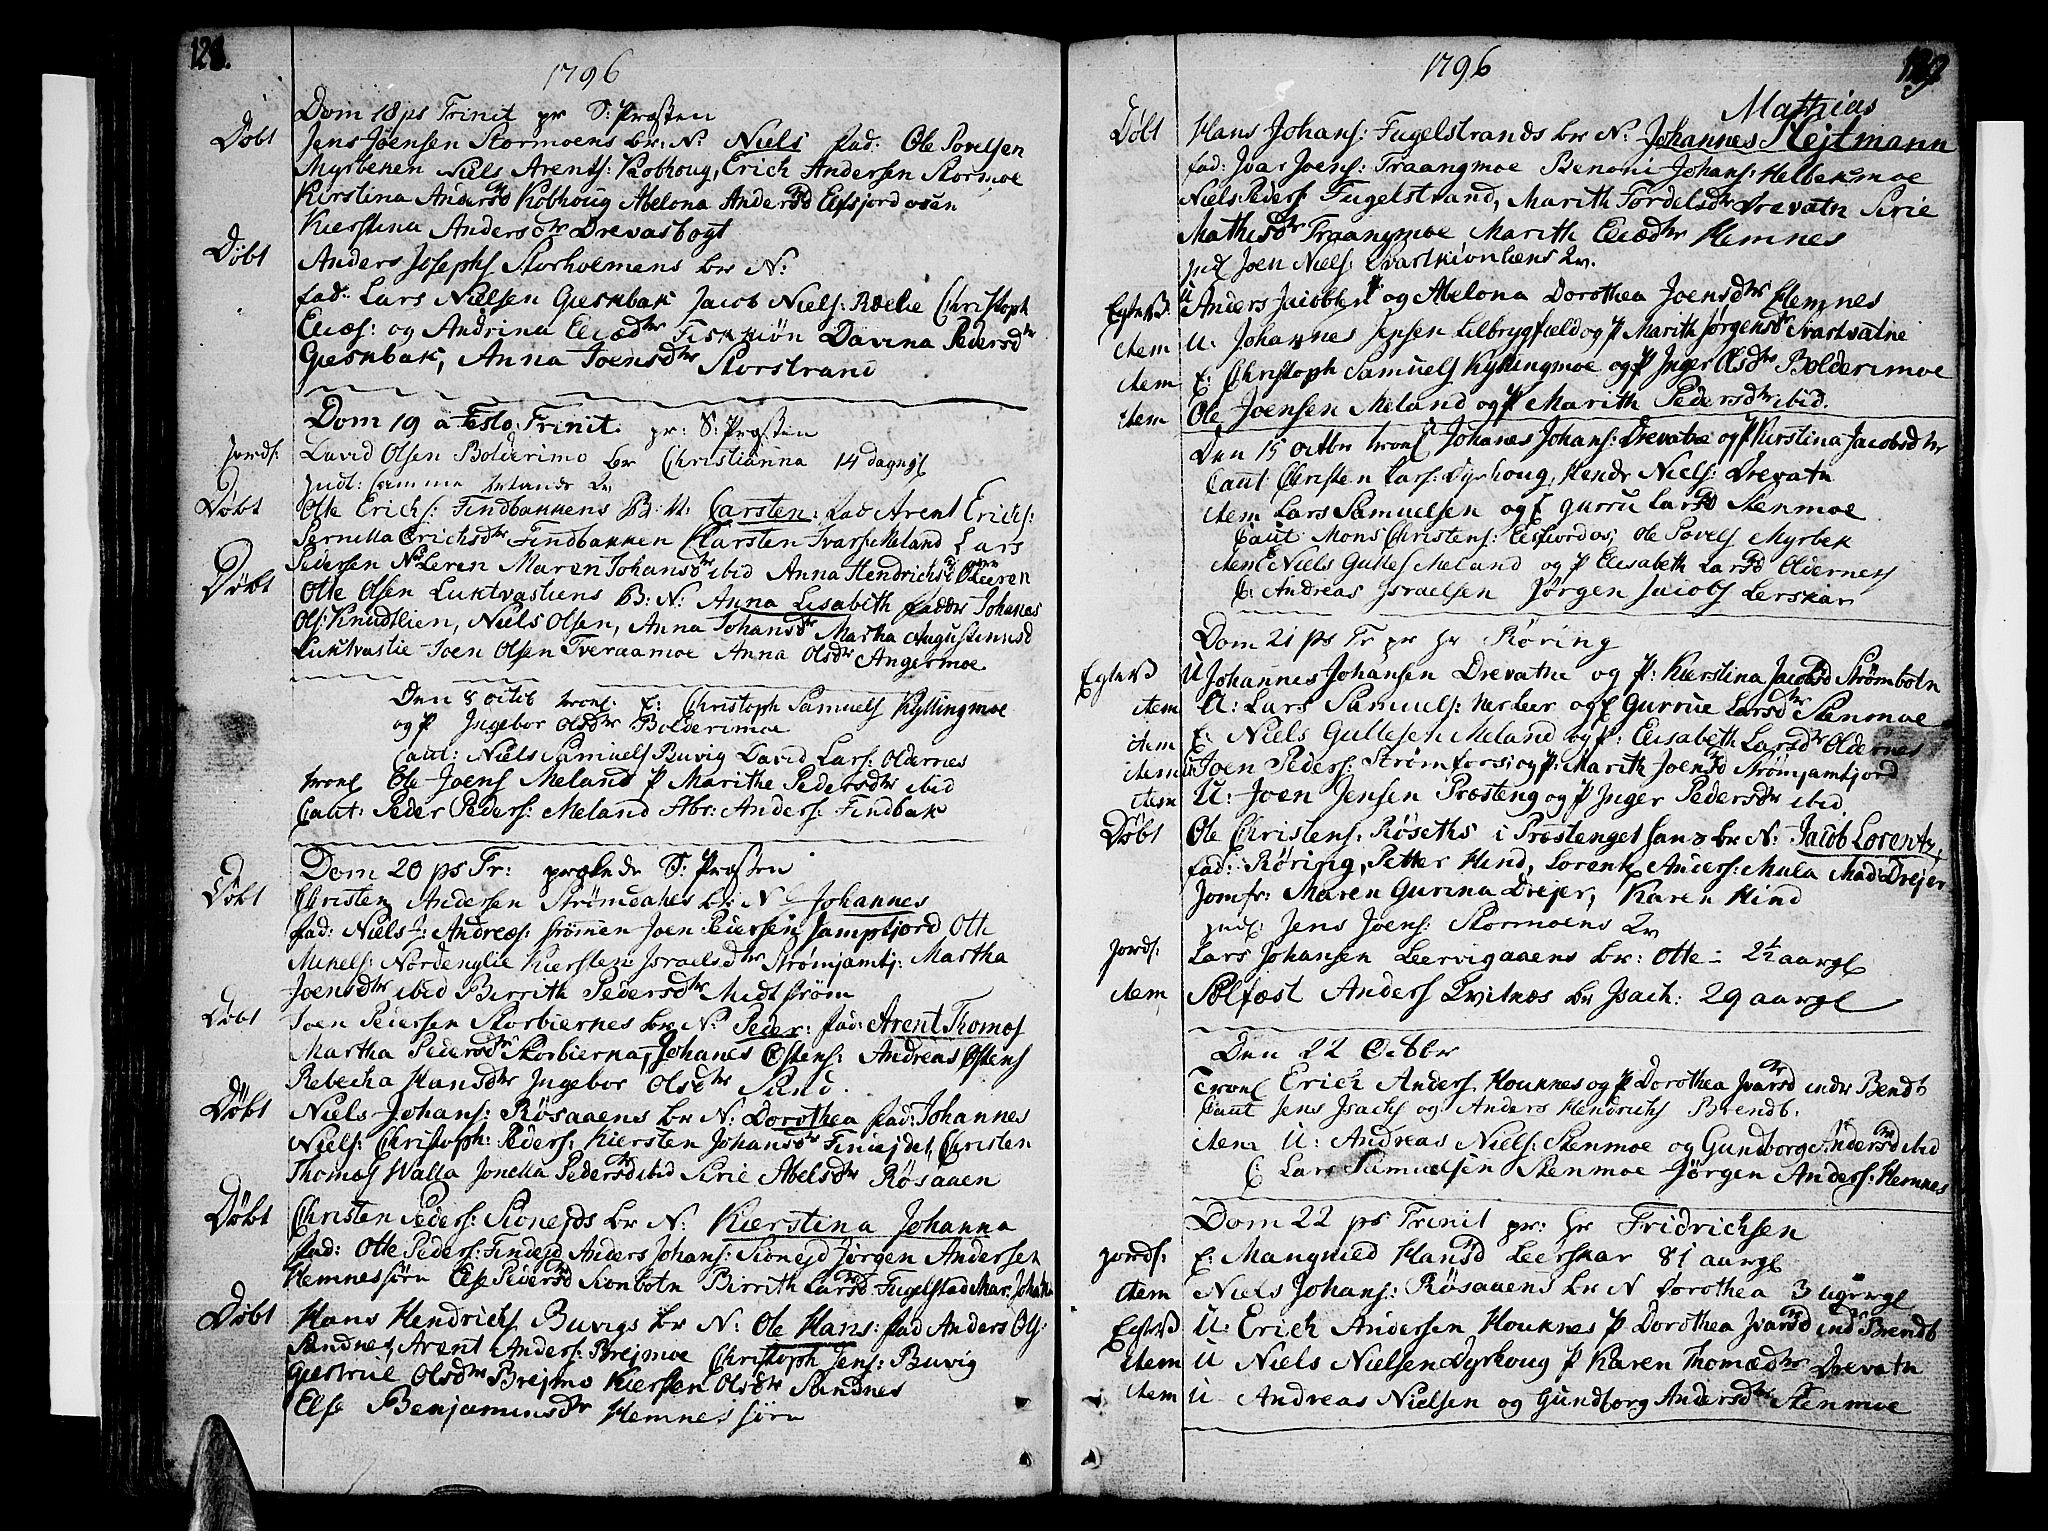 128.
1796
Dom 18 ps Trinit pr S: Præsten
Døbt Jens Jøensen Stormoens br: N: Niels fad: Ole Povelsen
Myrbeken Niels Arents: Kobhoug, Erich Andersen Stormoe
Kirstina Andersdr Kobhoug Abelona Andersdr Elfsjordosen
Kierstina Andersdr Drevasbogt
Døbt Anders Josephs Storholmens br N:
fad: Lars Nielsen Gieskbak Jacob Niels: Rælie Christoph
Elies: og Andrina Eliædtr Fiskkiøn Davina Pedersdr
Gieskbak, Anna Joensdtr Storstrand
Dom 19 a Festo Trinit. pr: S: Præsten
Jords: David Olsen Bolderimo br Christianna 14 dag gl
Jndl: samme Kv
Døbt Otte Erichs: Findbakkens B: N: Carsten: fad Arent Erichs:
Pernilla Erichsdtr Findbakken Carsten Ivars: Meland Lars
Pedersen N: Leren Maren Johansdtr ibid Anna Hendrichsd O: Leeren
Døbt Otte Olsen Luktvasliens B: N: Anna Lisabeth fadder Johanas
Ols: Knudtlien, Niels Olsen, Anna Johansdr Martha Augustinusd
Luktvaslie Joen Olsen Tveraamoe Anna Olsdtr Angermoe
Den 8 octib trol. E: Christoph Samuels Kyllingmoe
og P Ingebor Olsdtr Bolderimoe
Caut: Niels Samuels Buvig David Lars: Oldernes
trol Ole Joens Meland P Marithe Pedersdtr ibid
Caut: Peder Peders: Meland Abr: Anders: Findbak
Dom 20 ps Tr: prælede S: Præsten
Døbt Christen Andersen Strømdahls br: N: Johannes
fad: Niels J: Andreas: Strømen Joen Pedersen Jamtfjord Otte
Mikels: Nordenglie Kiersten Israelsdtr Strømjamtj: Martha
Joensdtr ibid Birrith Pedersdtr Midtstrøm
Døbt Joen Pedersen Storbiernes br: N: Peder: fad: Arent Thomas
Martha Pedersdtr Storbierna, Johanes Ostens: Andreas Ostens
Rebecka Hansdtr Jngebor Olsdtr Sund.
Døbt Niels Johans: Røsaaens br N: Dorothea fad: Johannes
Niels: Christoph: Peders: Kiersten Johansdr Finiejdet, Christen
Thomas Walla Jonetta Pedersd ibid Sirie Abelsdtr Røsaaen
Døbt Christen Peders: Sionejds br N: Kierstina Johanna
fad: Otte Peders: Findejd Anders Johans: Sionejd Jørgen Andersen
Hemnessørn Else Pedersd Sionbotn Birrith Larsd Fugelstad Mar: Johans
Døbt Hans Hendrichs Buvigs br N: Ole Hans: fad Anders Ols:
Sandnes, Arent Anders: Brejmoe Christoph Jens: Buvig
Giertrue Olsdtr Brejmo Kiersten Olsdtr Sandnes
Else Benjaminsdr Hemnessørn
129
1796
Mathias
Døbt Hans Johans: Fugelstrands br N: Johannes Hejtmann
fad: Jvar Joens: Traangmoe Benoni Johans: Helbekmoe
Niels Peders Fugelstrand, Marith Tordelsdtr Drevatn Sirie
Mathisdtr Traangmoe Marith Eliædtr Hemnes
Jnd Joen Niels: Svartkionliens Kv.
Egtev: U Anders Jacobsen og Abelona Dorothea Joensdtr Hemnes
item U: Johannes Jensen Lilbrygfield og P Marith Jørgensdr Svartvatne
item E: Christoph Samuels Kyllingmoe og P Inger Olsdtr Bolderimoe
item Ole Joensen Meland og P Marith Pedersdtr ibid.
Den 15 octbr trol Johanes Johans: Drevatne og P Kirstina Jacobsdtr
Caut: Christen Lars: Dyrhoug, Hendr Niels: Drevatn
item Lars Samuelsen og P Gurru Larsd Stenmoe
Caut Mons Christens: Elsfiordos; Ole Povels Myrbek
item E Niels Gulles Meland og P Elisabeth Larsd Oldernes
C: Andreas Israelsen Jørgen Jacobs Lerskar
Dom 21 ps Tr pr Hr Røring
Egtev U Johannes Johansen Drevatne og P: Kierstina Jacobsd Strømbotn
item U: Lars Samuels: Nerleer og P Gurrue Larsdtr Stenmoe
item E: Niels Gullesen Meland og P: Elisabeth Larsdtr Oldernes
item U Joen Peders: Strømfors: og P: Marith Joensd Strømjamtjord
item U: Joen Jensen Præsteng og P Inger Pedersdtr ibid
Døbt Ole Christens: Røseths i Præstenget hans br N: Jacob Lorentz,
fad: Røring, Petter Hind, Lorentz Anders: Mula Mad: Drejer
Jomfr: Maren Gurina Drejer, Karen Hind
Jndl: Jens Joens: Stormoens Kv
Jords: Lars Johansen Leervigaaens br: Otte - 2½ aar gl
item Sølfæst Anders Kvitnæs br Jsach: 29 aar gl
Den 22 Octbr
Trol Erich Anders Houknes og P Dorothea Jvarsd indr Bendt
Caut Jens Jsachs og Anders Hendrichs Brendt.
item U: Andreas Niels: Stenmoe og Gundborg Andersd ibid
C: Lars Samuelsen Stenmoe Jørgen Anders: Hemnes
Dom 22 ps Trinit pr: Hr Fridrichsen
Jords: E: Mangnild Hansd Leerskar 81 aar gl
item Niels Johans: Røsaaens br N Dorothea 3 uger gl
Egtev U: Erich Andersen Houknes P Dorothea Jvarsd ind Brendt
item U Niels Nielsen Dyrhoug P Karen Thomædtr Drevatn
item U Andreas Nielsen og Gundborg Andersdtr Stenmoe